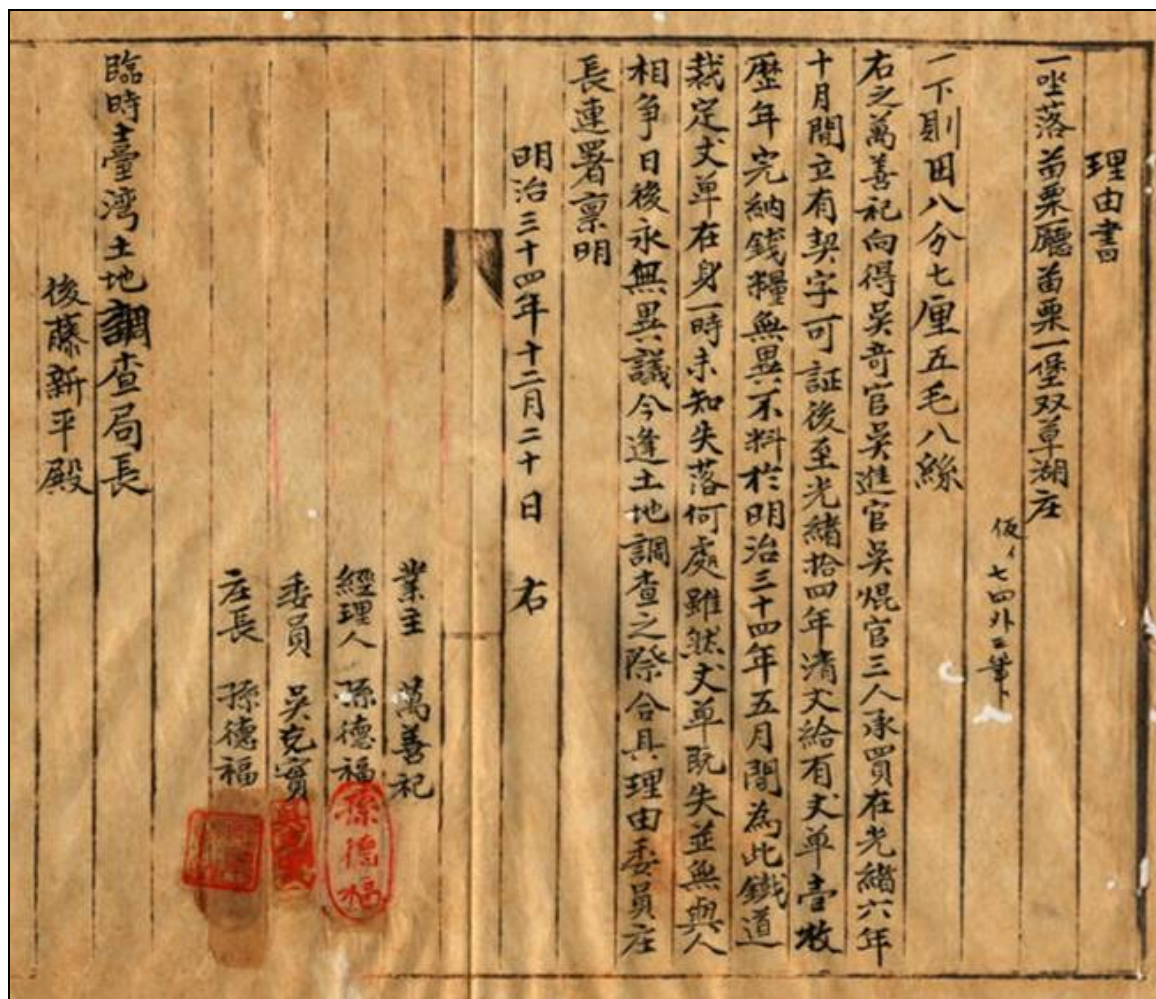 理由書
一坐落苗栗廳苗栗一堡双草湖庄
七四外三筆
一下則田八分七厘五毛八絲
右之萬善祀向得吳奇官吳進官吳焜官三人承買在光緒六年
十月間立有契字可証後至光緒拾四年清丈給有丈單壹枚
歷年完納錢糧無異不料於明治三十四年五月間為此鐵道
裁定丈單在身一時未知失落何處雖然丈單既失並無與人
相爭日後永無異議今逢土地調查之際合具理由委員庄
長連署禀明
明治三四年十二月二十日 右
業主 萬善祀
經理人 孫德福
孫德福
委員 吳克實
庄長 孫德福
臨時臺灣土地調查局長
後藤新平殿